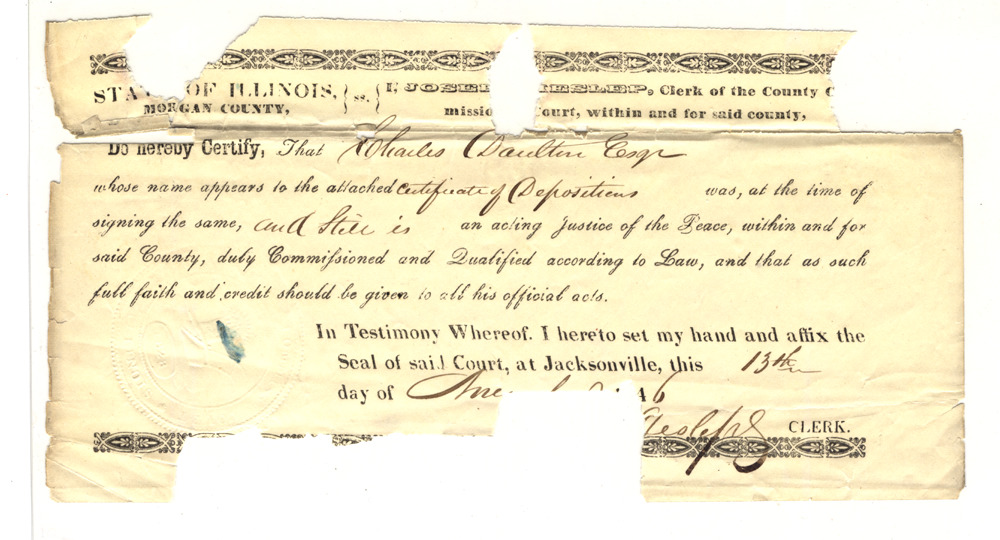 STA OF ILLINOIS, } ss. { I, JOSE HESLEP, Clerk of the County C
MORGAN COUNTY, missio ourt, within and for said county,
Do hereby Certify, That Charles Daulton Esqr
whose name appears to the attached Certificate of Depositions was, at the time of
signing the same, and Still is an acting Justice of the Peace, within and for
said County, duly Commissioned and Qualified according to Law, and that as such
full faith and credit should be given to all his official acts.
In Testimony Whereof. I hereto set my hand and affix the
Seal of said Court, at Jacksonville, this 13th
day of 46
Heslep CLERK.